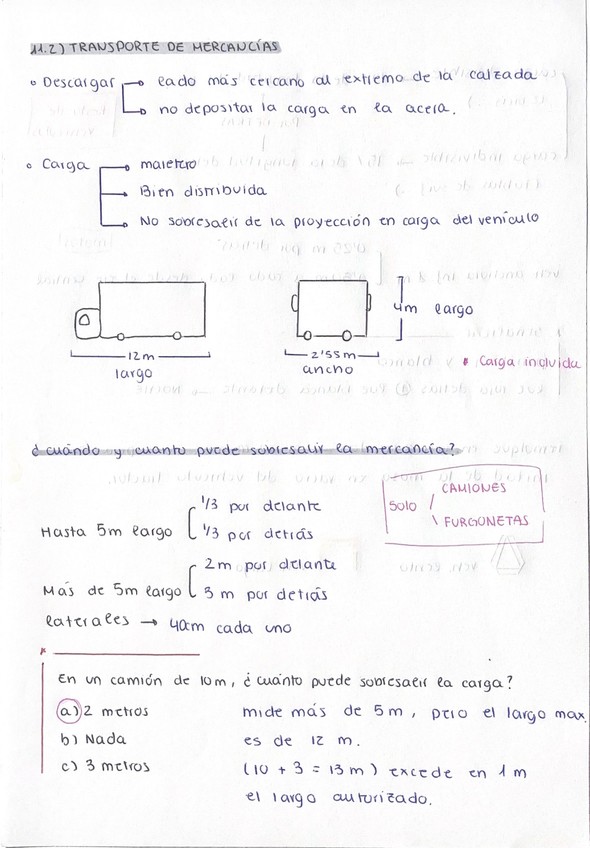 11.2) TRANSPORTE DE MERCANCÍAS
• Descargar → lado más cercano al extremo de la calzada
→ no depositar la carga en la acera.
• Carga → maletero
→ Bien distribuida
→ No sobresalir de la proyección en carga del vehículo
12 m
largo
2'55 m
ancho
4m largo
* Carga incluida
¿cuándo y cuanto puede sobresalir la mercancía?
Hasta 5m largo
1/3 por delante
1/3 por detrás
Más de 5m largo
2 m por delante
3 m por detrás
laterales → 40cm cada uno
Solo / CAMIONES
\ FURGONETAS
*
En un camión de 10m, ¿cuánto puede sobresalir la carga?
a) 2 metros
b) Nada
c) 3 metros
mide más de 5m, pero el largo max.
es de 12 m.
(10 + 3 = 13 m) excede en 1 m
el largo autorizado.